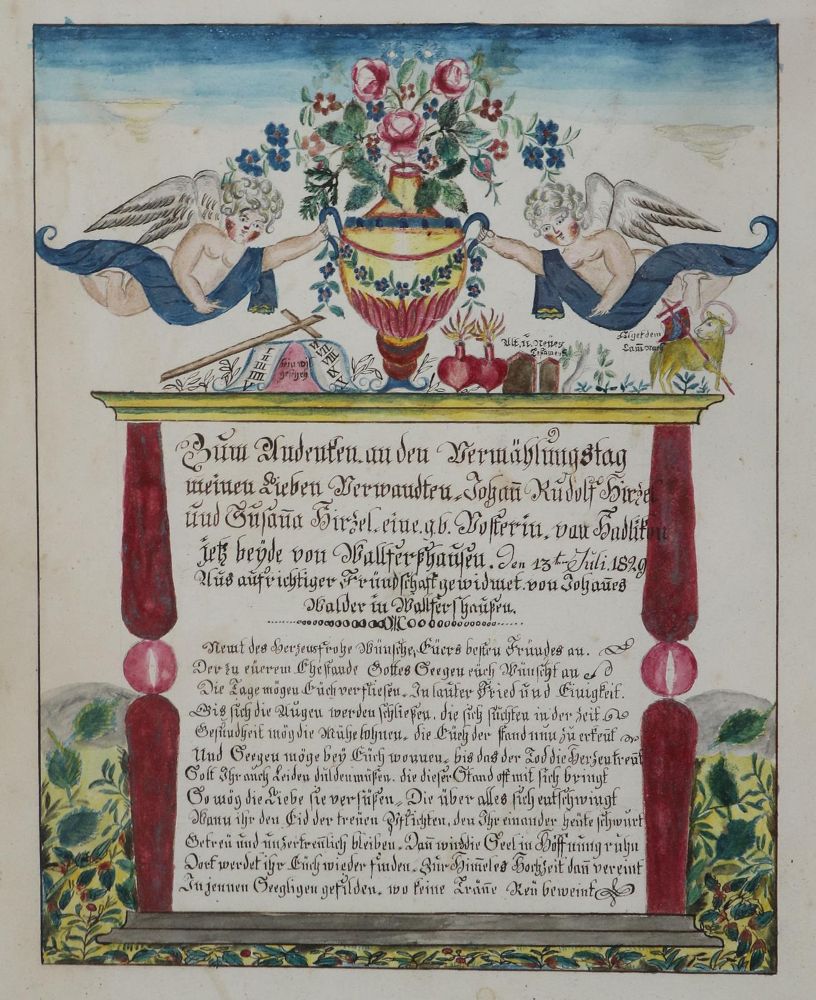 I
II
III
IIII
V
VI
VII
VIII
IX
X
Alt. ü. Neües
Testament
Sieget dem
Lam̄ nach
Zum Andenken an den Vermählungstag
meinen Lieben Verwandten, Johan̄ Rudolf Hirzel
und Susan̄a Hirzel, eine gb. Bosterin, von Hadlikon
jetz beyde von Wallferßhausen. Den 13ten Juli. 1829
Aus aufrichtiger Fründschaft gewidmet von Johan̄es
Walder in Wallfershaußen.
Nemt des Herzens frohe Wünsche, Eüers besten Fründes an.
Der zu eüerem Ehestande Gottes Seegen eüch Wünscht an
Die Tage mögen Eüch verfliesen. In lauter Fried und Einigkeit.
Bis sich die Augen werden schließen, die sich süchten in der Zeit
Gesundheit mög die Mühe lohnen, die Eüch der stand nun zu erkent
Und Seegen möge bey Eüch wonnen, bis das der Tod die Herzen trent
Solt Ihr auch Leiden dulden müßen, die dieser Stand oft mit sich bringt
So mög die Liebe sie versüßen, Die über alles sich entschwingt
Wann ihr den Eid der treüen Pflichten, den Ihr einander heüte schwurt
Getreü und unzertrenlich bleiben. Dan̄ wird die Seel in Höffnung ruhn
Dort werdet ihr Eüch wieder finden. Zur Him̄els Hochzeit dan̄ vereint
In jennen Seegligen gefilden, wo keine Trän̄e Reü beweint